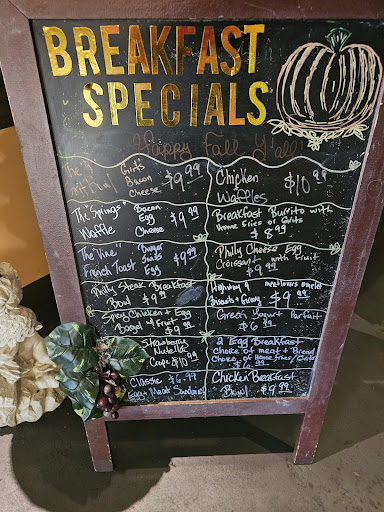 BREAKFAST
SPECIALS
Happy Fall Y'all!
The "V" Grits $9.99
Grit Bowl Bacon
Cheese
The "Springs" Bacon $9.99
Waffle Egg
Cheese
The "Vine" Burger $9.99
French Toast Swiss
Egg
Philly Steak Breakfast
Bowl $9.99
Spicy Chicken + Egg
Bagel w/ Fruit
$9.99
Strawberry
Nutella
Crepe $10.99
Classic $6.99
Egg + Meat Sandwich
Chicken $10.99
Waffles
Breakfast Burrito with
Home Fries or Grits
$8.99
Philly Cheese Egg
Croissant with Fruit
$9.99
Highway 9 meat lovers omelet
Biscuits + Gravy $9.99
Greek Yogurt Parfait
$6.99
2 Egg Breakfast
Choice of meat + Bread
Choice of Home fries/Grits
Chicken Breakfast
Bowl $9.99